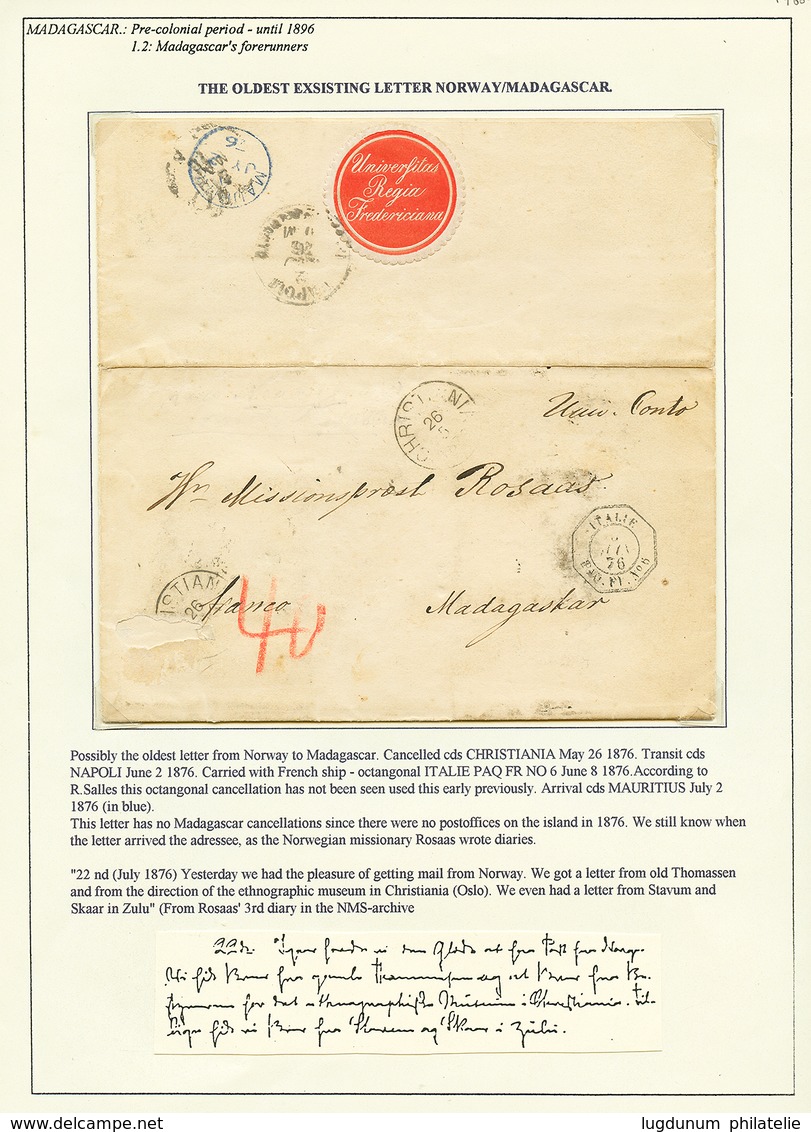 MADAGASCAR.: Pre-colonial period - until 1896
1.2: Madagascar's forerunners
THE OLDEST EXSISTING LETTER NORWAY/MADAGASCAR.
76
JY
MAU
Universitas
Regia
Fredericiana
NAPOLI
CHRISTIANIA
26
5
Univ. Conto
Hr Missionsprest Rosaas
ITALIE
76
PAQ. FR. No 6
STIAN
26
franco
40
Madagaskar
Possibly the oldest letter from Norway to Madagascar. Cancelled cds CHRISTIANIA May 26 1876. Transit cds
NAPOLI June 2 1876. Carried with French ship - octangonal ITALIE PAQ FR NO 6 June 8 1876.According to
R.Salles this octangonal cancellation has not been seen used this early previously. Arrival cds MAURITIUS July 2
1876 (in blue).
This letter has no Madagascar cancellations since there were no postoffices on the island in 1876. We still know when
the letter arrived the adressee, as the Norwegian missionary Rosaas wrote diaries.
"22 nd (July 1876) Yesterday we had the pleasure of getting mail from Norway. We got a letter from old Thomassen
and from the direction of the ethnographic museum in Christiania (Oslo). We even had a letter from Stavum and
Skaar in Zulu" (From Rosaas' 3rd diary in the NMS-archive
22de. Igaar havde vi den Glæde at faa Post fra Norge.
Vi fik Brev fra gamle Thomassen og et Brev fra Be-
styreren for det ethnographiske Museum i Christiania. Til-
lige fik vi Brev fra Stavem og Skaar i Zulu.
www.delcampe.net
lugdunum philatelie